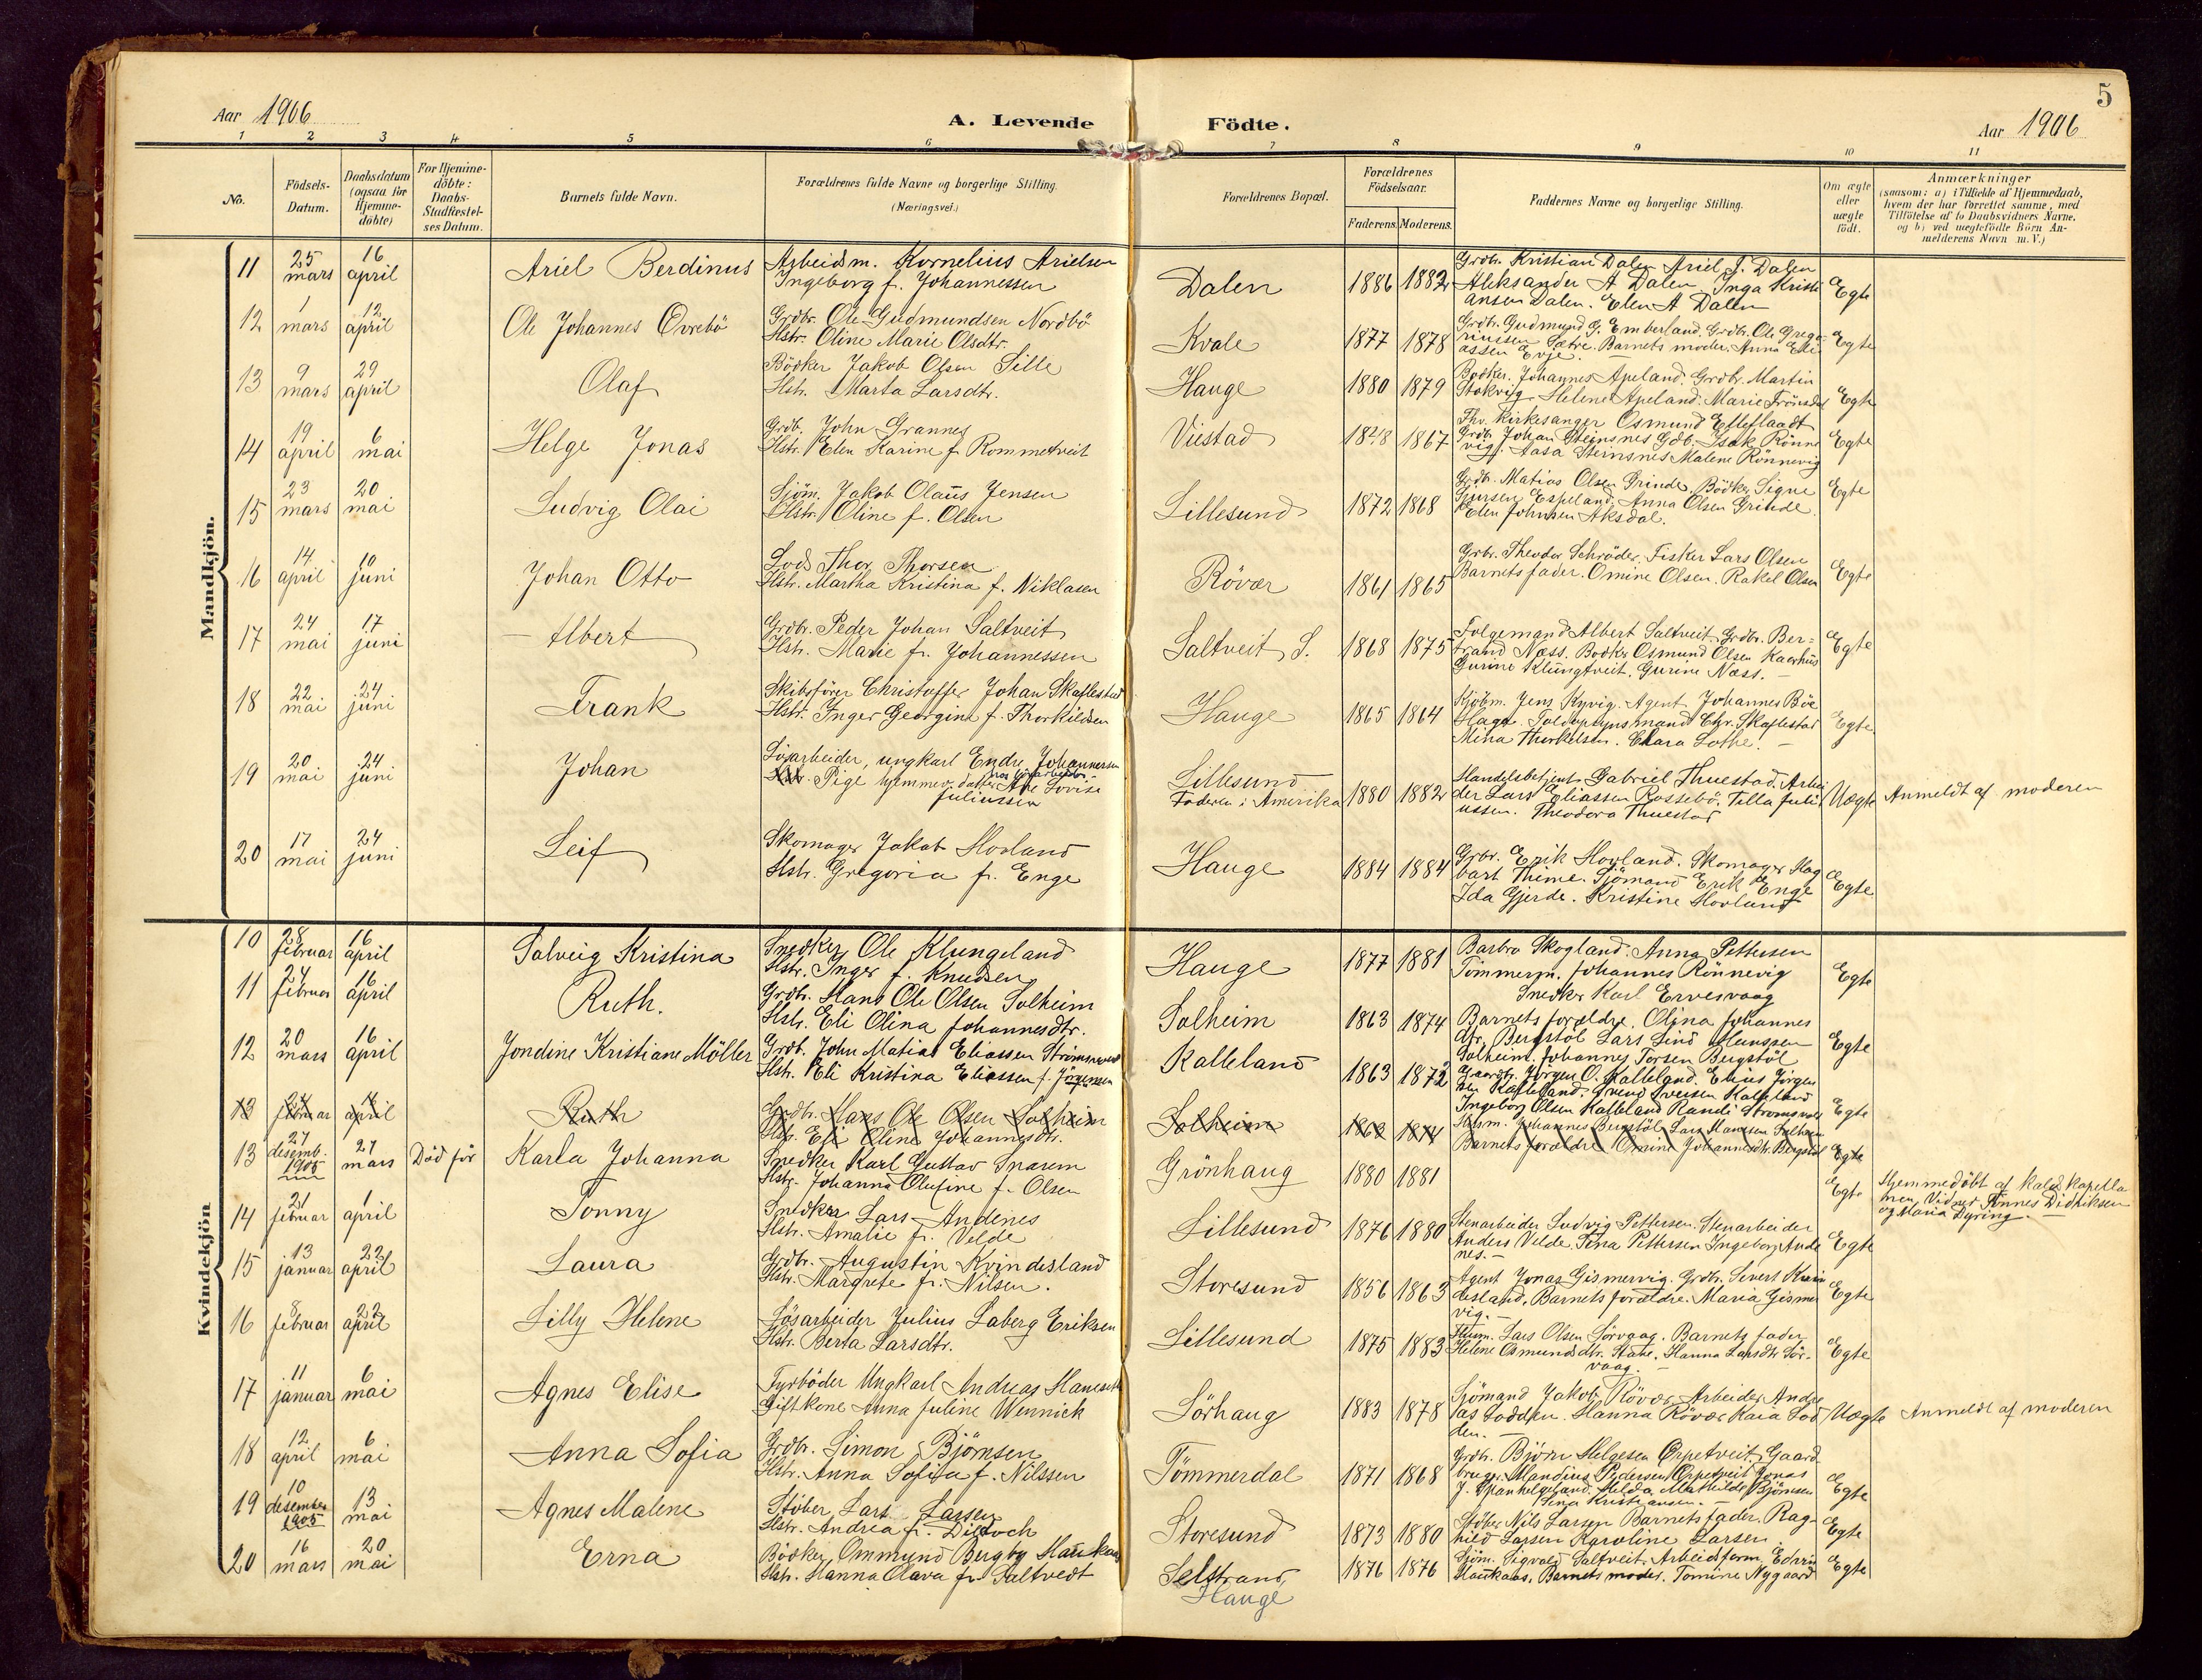 5
Aar 1906
A. Levende Födte.
Aar 1906
1 2 3 4 5 6 7 8 9 10 11
No.
Födsels-Datum.
Daabsdatum (ogsaa for Hjemme-döbte)
For Hjemme-döbte: Daabs-Stadfæstel-ses Datum.
Barnets fulde Navn.
Forældrenes fulde Navne og borgerlige Stilling.
(Næringsvei.)
Forældrenes Bopæl.
Forældrenes Födselsaar.
Faderens. Moderens.
Faddernes Navne og borgerlige Stilling.
Om ægte eller uægte födt.
Anmærkninger
(saasom: a) i Tilfælde af Hjemmedaab,
hvem der har forrettet samme, med
Tilföielse af to Daabsvidners Navne.
og b) ved uægtefödte Börn An-
melderens Navn m. V.)
Mandkjön.
11 25 mars 16 april Ariel Berdinus
Arbeidsm. Kornelius Arielsen
Ingeborg f. Johannessen
Dalen 1886 1882
Grdbr. Kristian Dalen Ariel J. Dalen
Aleksander A Dalen Inga Kristi
ansen Dalen. Elen A Dalen
Egte
12 1 mars 12 april Ole Johannes Övrebö
Grdbr. Ole Gudmundsen Nordbö
Hstr. Oline Marie Olsdtr.
Kvale 1877 1878
Grdbr. Gudmund G. Emberland. Grdbr. Ole Grego
riussen Sætre. Barnets moder. Anna Eli
assen Evje.
Egte
13 9 mars 29 april Olaf
Bödker Jakob Olsen Sille
Hstr. Marta Larsdtr.
Hauge 1880 1879
Bödker. Johannes Apeland. Grdbr. Martin
Stokvig Helene Apeland. Marie
Egte
14 19 april 6 mai Helge Jonas
Grdb. John Grannes
Hstr. Elen Karine f. Rommetveit
Viestad 1867
Fhv. Kirkesanger Osmund
Grdb. Johan Steinsnes Gdb. Isak Rönne
vig. Aasa Steinsnes Malene Rönnevig
Egte
15 23 mars 20 mai Ludvig Olai
Sjöm. Jakob Olaus Jensen
Hstr. Oline f. Olsen
Lillesund 1872 1868
Grdb. Matias Olsen Grinde. Bödker Signe
Espeland. Anna Olsen Grinde.
Elen Johnsen Aksdal.
Egte
16 14 april 10 juni Johan Otto
Lods Thor Thorsen
Hstr. Martha Kristina f. Niklasen
Rövær 1861 1865
Grbr. Theodor Schröder. Fisker Lars Olsen
Barnets fader. Omine Olsen. Rakel Olsen
Egte
17 24 mai 17 juni Albert
Grdbr. Peder Johan Saltveit
Hstr. Marie f. Johannessen
Saltveit S. 1868 1875
Folgemand Albert Saltveit. Grdbr. Ber=
trand Næss. Bödker Osmund Olsen Kaarhus
Gurine Klungtveit. Gurine Næss. –
Egte
18 22 mai 24 juni Frank
Skibsförer Christoffer Johan Skaflestad
Hstr. Inger Georgine f. Thorkildsen
Hauge 1865 1864
Kjöbm. Jens Kyvig. Agent Johannes Böe
Hage. Toldopsynsmand Chr. Skaflestad
Mina Thorkelsen. Clara Lothe. –
Egte.
19 20 mai 24 juni Johan
Lösarbeider, ungkarl Endre Johannessen
Pige hjemmev. datter Ane Lovise
Juliussen
Lillesund
Faderen i Amerika 1880 1882
Handelsbetjent Gabriel Thuestad. Arbei
der Lars Eliassen Rossebö. Tilla Juli
ussen. Theodora Thuestad
Uægte Anmeldt af moderen
20 17 mai 24 juni Leif
Skomager Jakob Hovland
Hstr. Gregoria f. Enge
Hauge 1884 1884
Grbr. Erik Hovland. Skomager Hag
bart Thime. Sjömand Erik Enge
Ida Gjerde. Kristine Hovland
Egte
Kvindekjön
10 28 februar 16 april Solveig Kristina
Snedker Ole Klungeland
Hstr. Inger f. Knudsen
Hauge 1877 1881
Barbro Skogland. Anna Pettersen
Tömmerm. Johannes Rönnevig
Snedker Karl Ervesvaag
Egte
11 24 februar 16 april Ruth.
Grdbr. Hans Ole Olsen Solheim
Hstr. Eli Olina Johannesdtr.
Solheim 1863 1874
Barnets forældre. Olina Johannes
dtr. Bergstöl Lars Hanssen
Solheim. Johannes Torsen Bergstöl
Egte
12 20 mars 16 april Jondine Kristiane Möller
Grdb. John Matias Eliassen
Hstr. Eli Kristina Eliassen f. Jörgensen
Kalleland 1863 1872
Gaardbr. Jörgen O. Kalleland. Elius Jörgen
sen Kalleland. Svend Iversen Kalleland
Ingeborg Olsen Kalleland Randi
Egte
13 24 februar april Ruth
Grdbr. Hans Ole Olsen Solheim
Hstr. Eli Oline Johannesdtr.
Solheim 1863 1874
Johannes Bergstöl Lars Hansen Solheim
Barnets forældre Omine Johannesdtr. Bergstöl
Egte
13 27 desemb. 1905 27 mars Död för Karla Johanna
Snedker Karl Gustav Snarem
Hstr. Johanna Olufine f. Olsen
Grönhaug 1880 1881
Egte Hjemmedöbt af kald. kapella
nen. Vidner Tönnes Didriksen
og Maria Dyring.
14 21 februar 1 april Tonny
Snedker Lars Andenes
Hstr. Amalie f. Velde
Lillesund 1876 1880
Stenarbeider Ludvig Pettersen. Stenarbeider
Anders Velde. Tina Pettersen Ingeborg Ande
nes. –
Egte
15 13 januar 22 april Laura
Grdbr. Augustin Kvindesland
Hstr. Margrete f. Nilsen.
Storesund 1856 1863
Agent Jonas Gismervig. Grdbr. Sivert Kvin
desland. Barnets forældre. Maria Gismer
vig. –
Egte
16 8 februar 22 april Lilly Helene
Lösarbeider Julius Laberg Eriksen
Hstr. Berta Larsdtr.
Lillesund 1875 1883
Lars Olsen Sörvaag. Barnets fader
Helene Osmundsdtr. Stave. Hanna Larsdtr Sör-
vaag. –
Egte
17 11 januar 6 mai Agnes Elise
Fyrböder Ungkarl Andreas Hansen
Gift kone Anna Juline Wennick
Sörhaug 1883 1878
Sjömand Jakob Rövær. Arbeider Andre
as Lodden. Hanna Rövær Kaia Lod
den. –
Uægte Anmeldt af moderen
18 12 april 6 mai Anna Sofia
Grdbr. Simon Björnsen
Hstr. Anna Sofia f. Nilssen
Tömmerdal 1871 1868
Grdb. Björn Helgesen Örpetveit. Gaard
bruger Mandius Pedersen Örpetveit Jonas
J. Spanhelgeland. Helda Mathilde Björnsen
Tina Kristiansen. –
Egte
19 10 desember 1905 13 mai Agnes Malene
Stöber Lars Larsen
Hstr. Andrea f. Dittoch
Storesund 1873 1880
Stöber Nils Larsen Barnets fader. Rag-
nild Larsen Karoline Larsen
Egte
20 16 mars 20 mai Erna
Bödker Ommund Bergby Haukaas
Hstr. Hanna Olava f. Saltvedt
Selstrand,
Hauge 1876 1876
Sjöm. Sigvald Saltveit. Arbeidsform. Edvin
Haukaas. Barnets moder. Tomine Nygaard
Egte